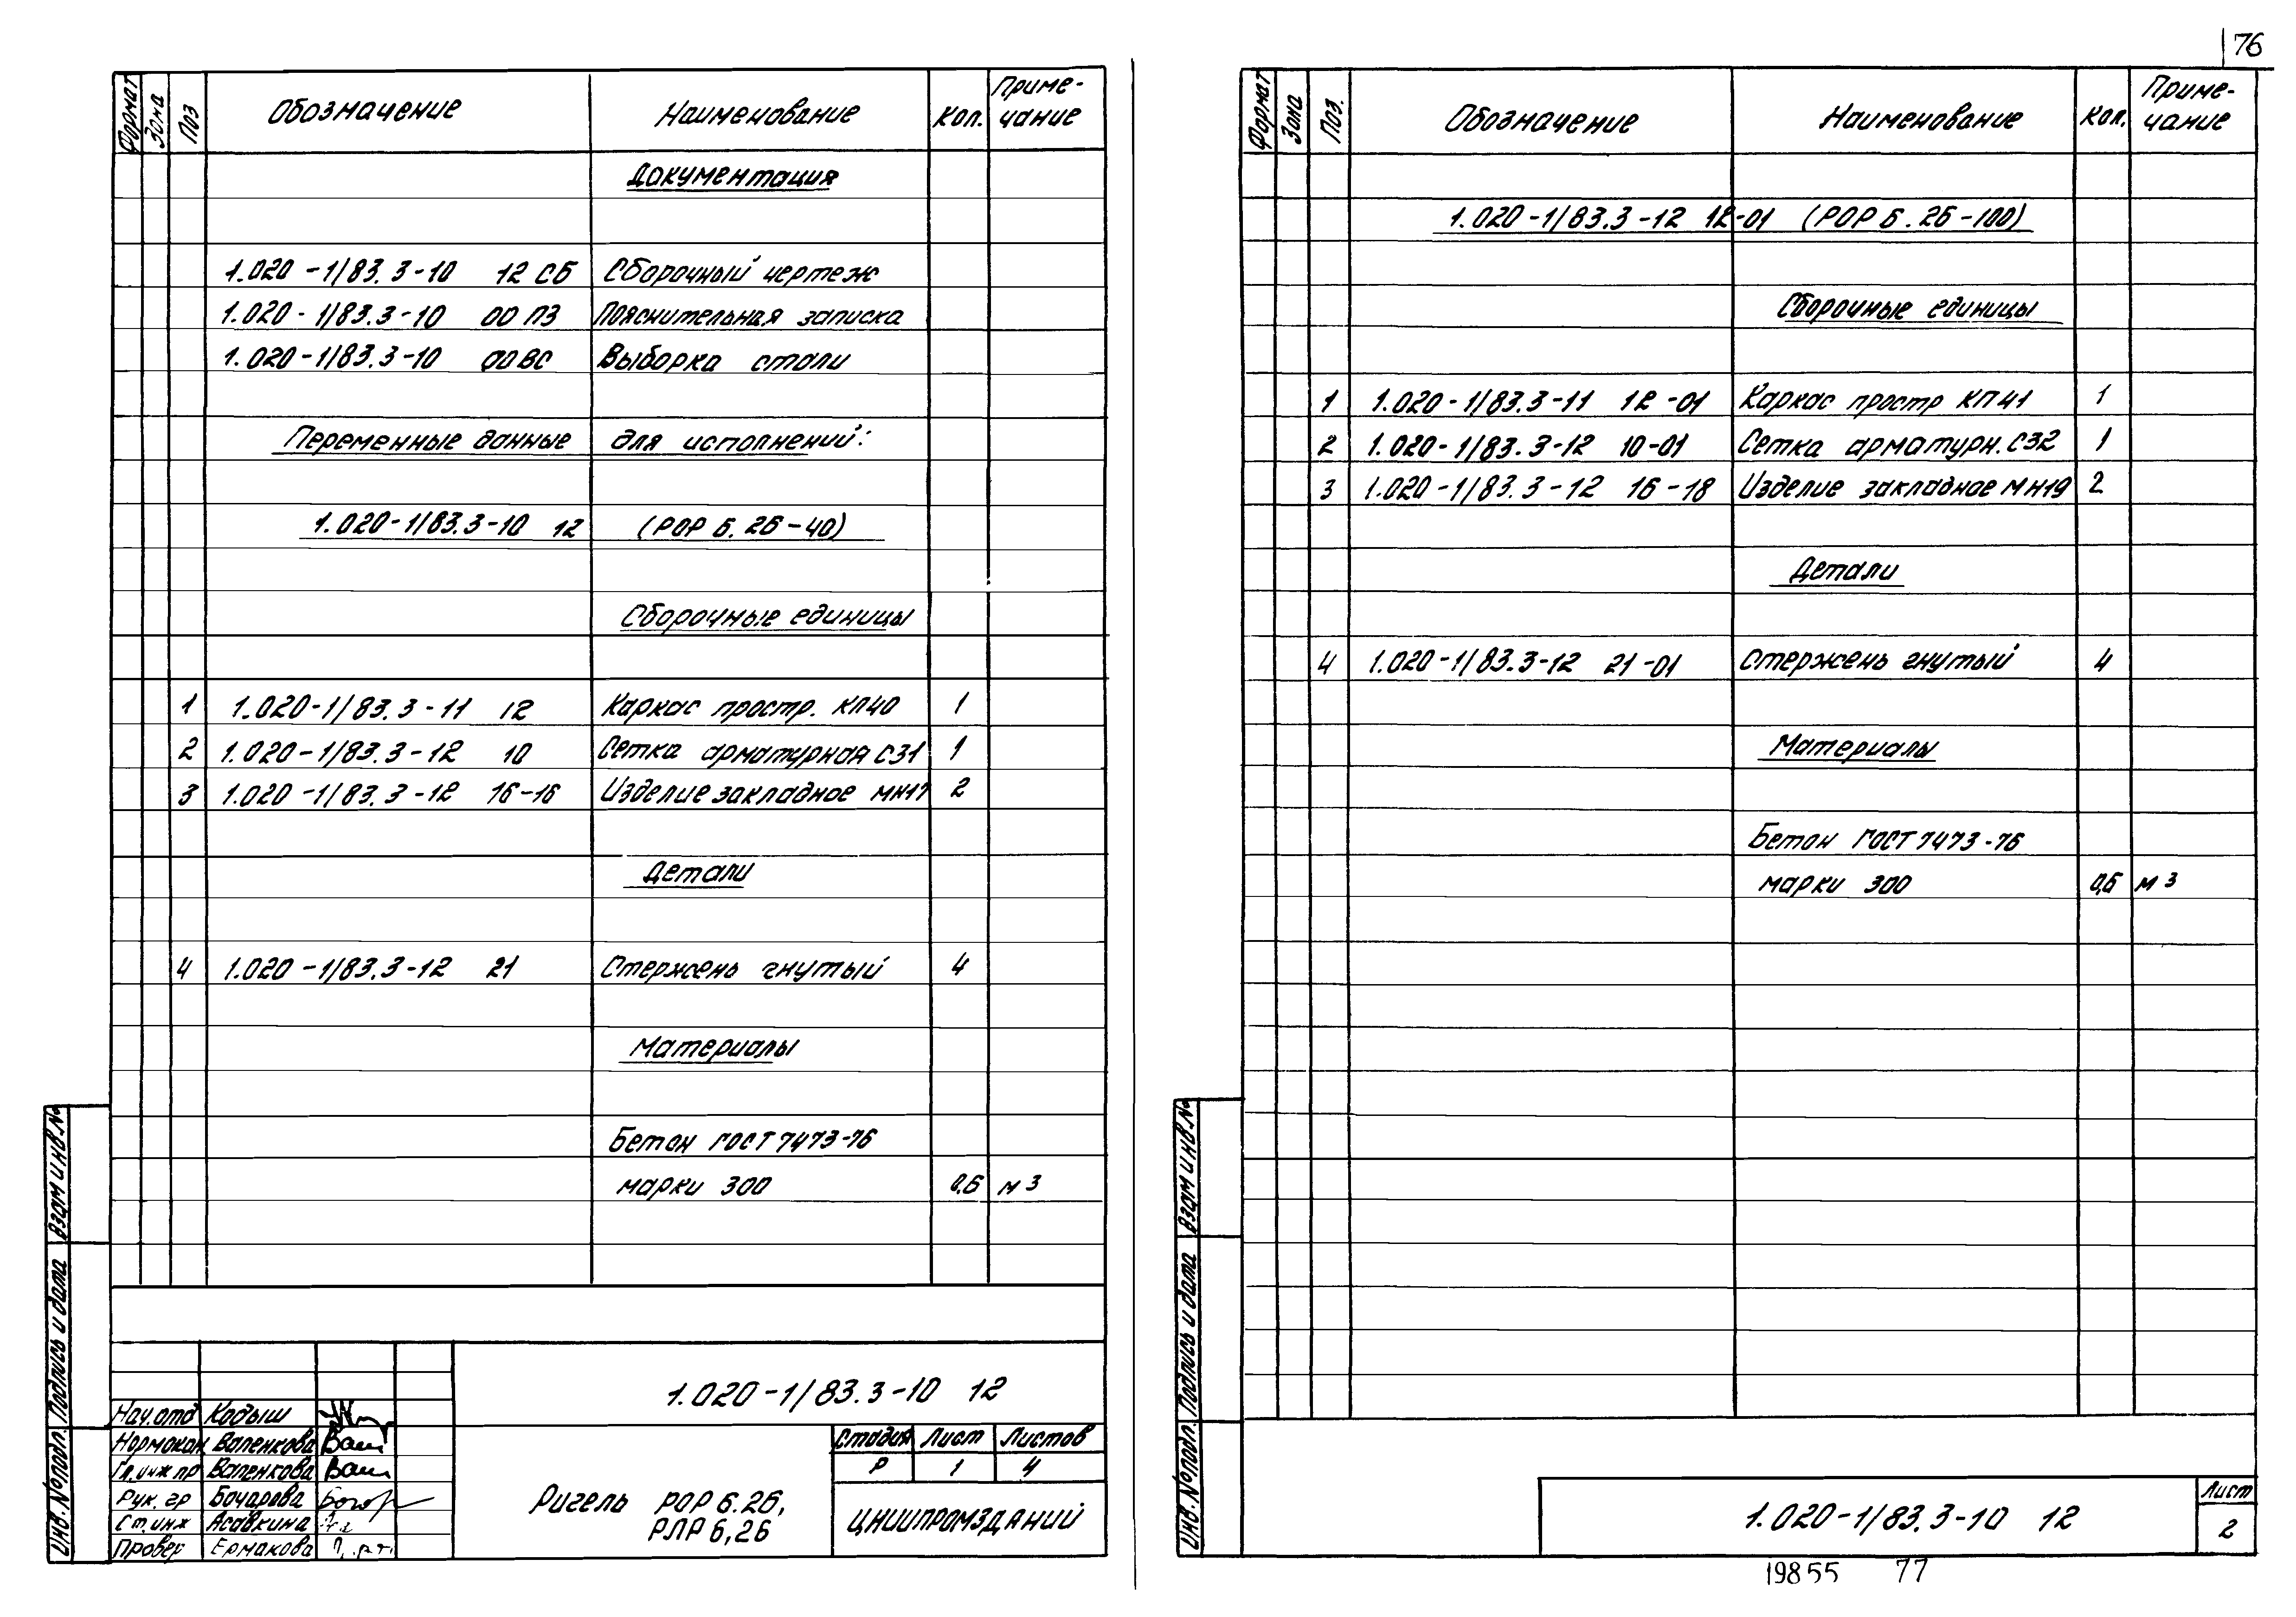 76
Формат Зона Поз Обозначение Наименование Кол. Приме-
чание
Документация
1.020-1/83.3-10 12 СБ Сборочный чертеж
1.020-1/83.3-10 00 ПЗ Пояснительная записка
1.020-1/83.3-10 00 ВС Выборка стали
Переменные данные для исполнений:
1.020-1/83.3-10 12 (РОР 6.26-40)
Сборочные единицы
1 1.020-1/83.3-11 12 Каркас простр. КП40 1
2 1.020-1/83.3-12 10 Сетка арматурная С31 1
3 1.020-1/83.3-12 16-16 Изделие закладное МН17 2
Детали
4 1.020-1/83.3-12 21 Стержень гнутый 4
Материалы
Бетон ГОСТ 7473-76
марки 300 0,6 м3
1.020-1/83.3-10 12
Нач.отд Кодыш
Нормокон Валенкова
Гл.инж пр Валенкова
Рук. гр Бочарова
Ст.инж Асавкина
Провер Ермакова
Ригель РОР 6.26,
РЛР 6,26
Стадия Лист Листов
Р 1 4
ЦНИИПРОМЗДАНИЙ
Инв. № подл. Подпись и дата Взам инв. №
Формат Зона Поз. Обозначение Наименование Кол. Приме-
чание
1.020-1/83.3-12 12-01 (РОР 6.26-100)
Сборочные единицы
1 1.020-1/83.3-11 12-01 Каркас простр КП41 1
2 1.020-1/83.3-12 10-01 Сетка арматурн. С32 1
3 1.020-1/83.3-12 16-18 Изделие закладное МН19 2
Детали
4 1.020-1/83.3-12 21-01 Стержень гнутый 4
Материалы
Бетон ГОСТ 7473-76
марки 300 0,6 м3
Инв. № подл. Подпись и дата Взам инв. №
1.020-1/83.3-10 12
Лист
2
19855 77